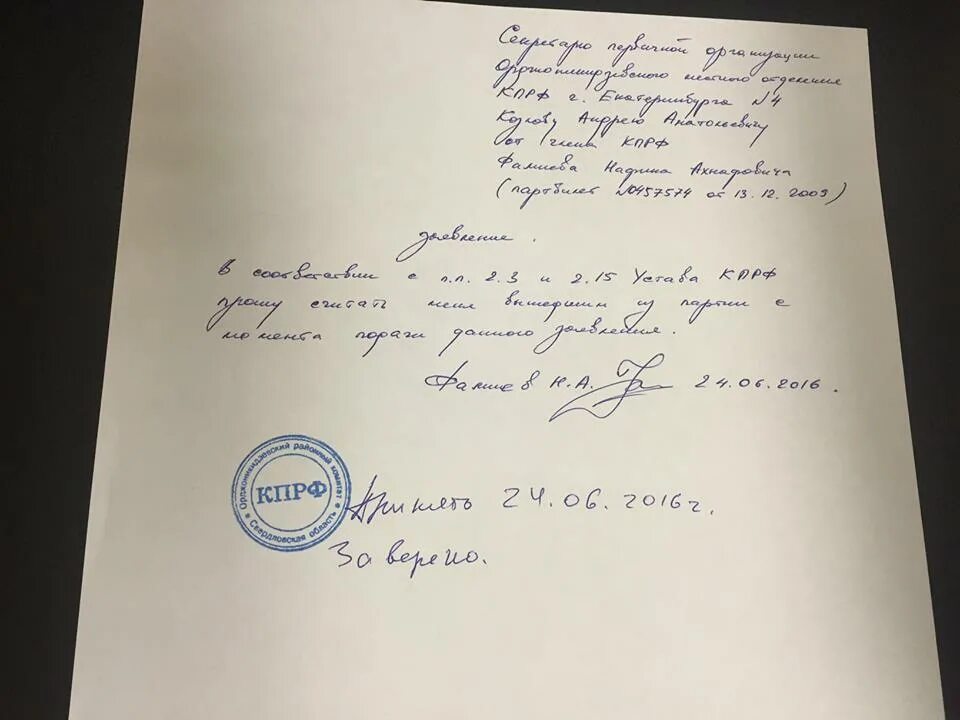 Секретарю первичной организации
Орджоникидзевского местного отделения
КПРФ г. Екатеринбурга №4
Козлову Андрею Анатольевичу
от члена КПРФ
Фамиева Надина Ахнафовича
(партбилет №0457574 от 13.12.2009)
Заявление.
В соответствии с п.п. 2.3 и 2.15 Устава КПРФ
прошу считать меня вышедшим из партии с
момента подачи данного заявления.
Фамиев Н.А. 24.06.2016.
Орджоникидзевский районный комитет
КПРФ
Свердловская область
Принято 24.06.2016г.
Заверено.